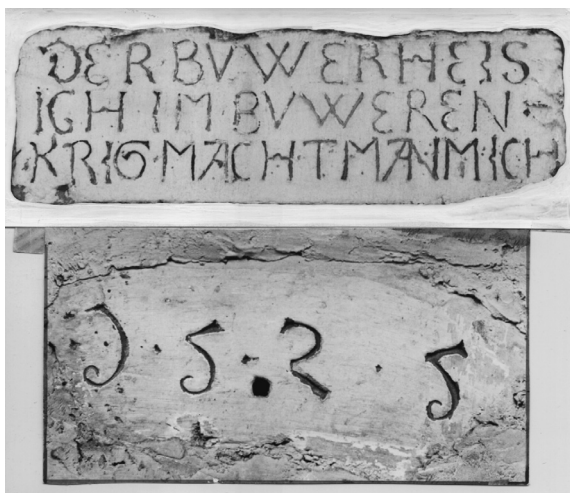 DER BVWER HEIS
ICH IM BVWEREN
KRIG MACHT MAN MICH
1·5·2·5